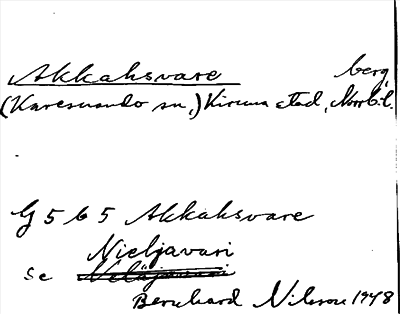 Akkahsvare berg,
(Karesuando sn,) Kiruna stad, Norrb. l.
G 5 b 5 Akkahsvare
Nieljavari
Se
Bernhard Nilsson 1948